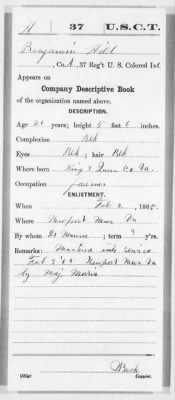 H 37 U.S.C.T.
Benjamin Hill
, Co. A, 37 Reg't U. S. Colored Inf.
Appears on
Company Descriptive Book
of the organization named above.
DESCRIPTION.
Age 20 years; height 5 feet 6 inches.
Complexion Blk
Eyes Blk; hair Blk
Where born King & Queen Co. Va.
Occupation Farmer
ENLISTMENT.
When Feb 2, 1865.
Where Newport News Va
By whom ; term 3 y'rs.
Remarks: Mustered into service
Feb 2 65 Newport News Va
by Maj. Morris
(383g) Copyist.